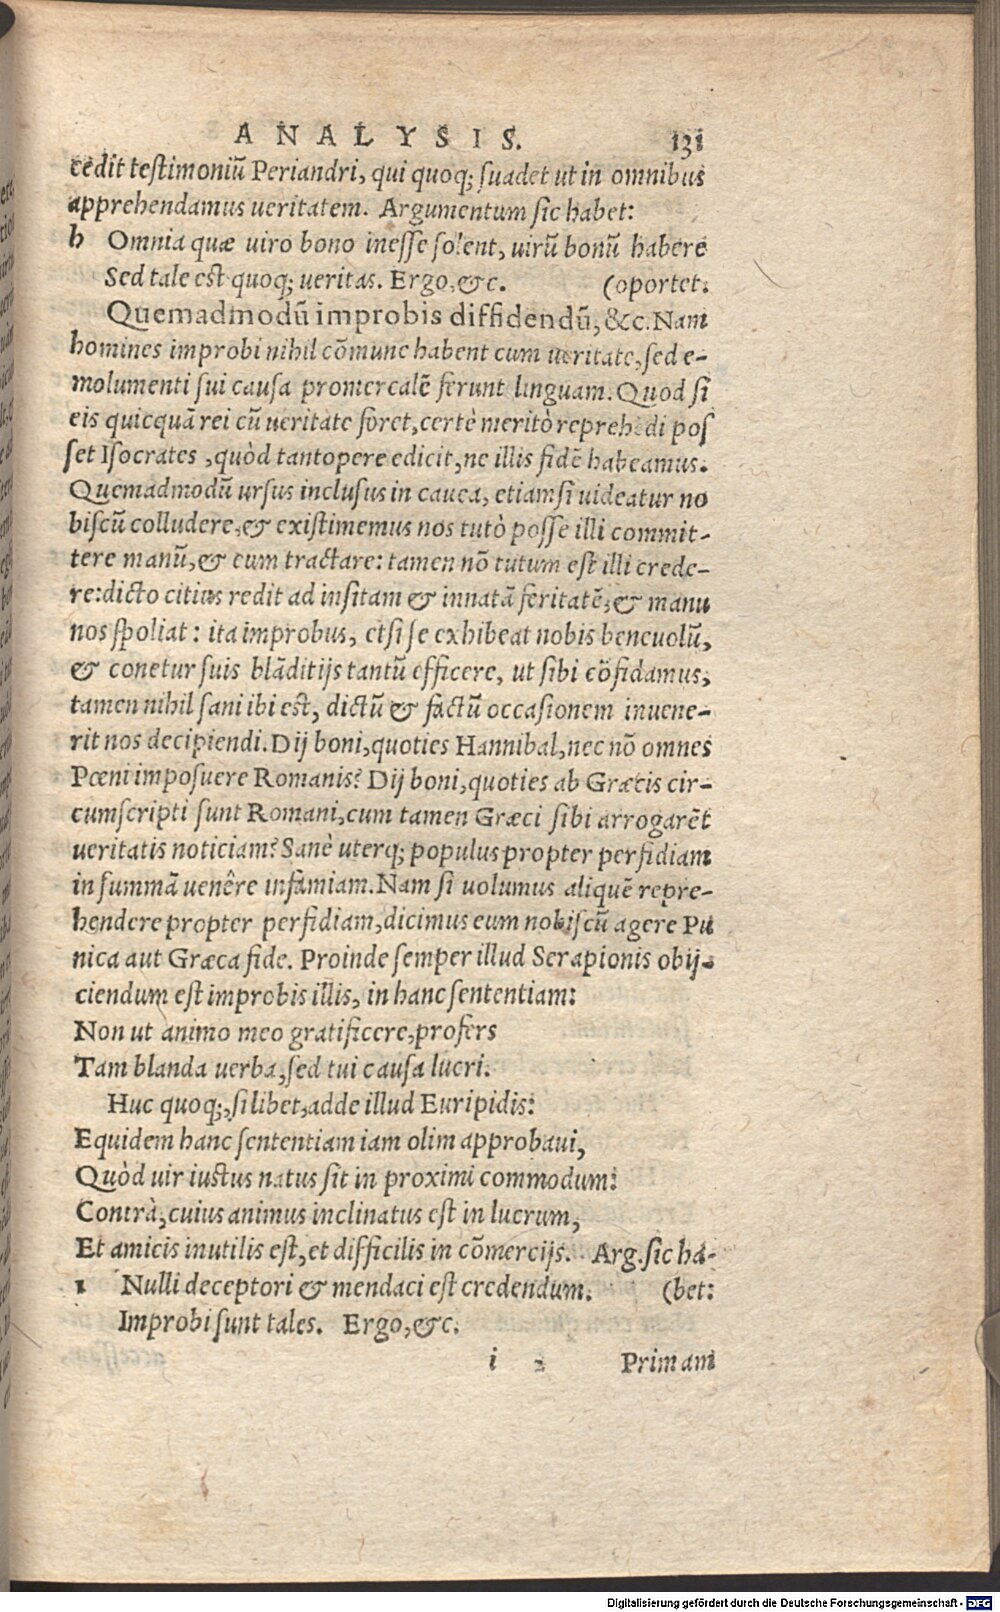 ANALYSIS. 131
cedit testimoniũ Periandri, qui quoq; suadet ut in omnibus
apprehendamus ueritatem. Argumentum sic habet:
h Omnia quæ uiro bono inesse solent, uirũ bonũ habere
Sed tale est quoq; ueritas. Ergo, &c. (oportet:
Quemadmodũ improbis diffidendũ, &c. Nam
homines improbi nihil cõmune habent cum ueritate, sed e-
molumenti sui causa promercalẽ ferunt linguam. Quod si
eis quicquã rei cũ ueritate foret, certè meritò reprehẽdi pos
set Isocrates, quòd tantopere edicit, ne illis fidẽ habeamus.
Quemadmodũ ursus inclusus in cauea, etiamsi uideatur no
biscũ colludere, & existimemus nos tutò posse illi commit-
tere manũ, & eum tractare: tamen nõ tutum est illi crede-
re: dicto citius redit ad insitam & innatã feritatẽ, & manu
nos spoliat: ita improbus, etsi se exhibeat nobis beneuolũ,
& conetur suis blãditijs tantũ efficere, ut sibi cõfidamus,
tamen nihil sani ibi est, dictũ & factũ occasionem inuene-
rit nos decipiendi. Dij boni, quoties Hannibal, nec nõ omnes
Pœni imposuere Romanis? Dij boni, quoties ab Græcis cir-
cumscripti sunt Romani, cum tamen Græci sibi arrogarẽt
ueritatis noticiam? Sanè uterq; populus propter perfidiam
in summã uenêre infamiam. Nam si uolumus aliquẽ repre-
hendere propter perfidiam, dicimus eum nobiscũ agere Pu
nica aut Græca fide. Proinde semper illud Serapionis obij-
ciendum est improbis illis, in hanc sententiam:
Non ut animo meo gratificere, profers
Tam blanda uerba, sed tui causa lucri.
Huc quoq;, si libet, adde illud Euripidis:
Equidem hanc sententiam iam olim approbaui,
Quòd uir iustus natus sit in proximi commodum:
Contrà, cuius animus inclinatus est in lucrum,
Et amicis inutilis est, et difficilis in cõmercijs. Arg. sic ha-
1 Nulli deceptori & mendaci est credendum. (bet:
Improbi sunt tales. Ergo, &c.
i 2 Primam
Digitalisierung gefördert durch die Deutsche Forschungsgemeinschaft - DFG